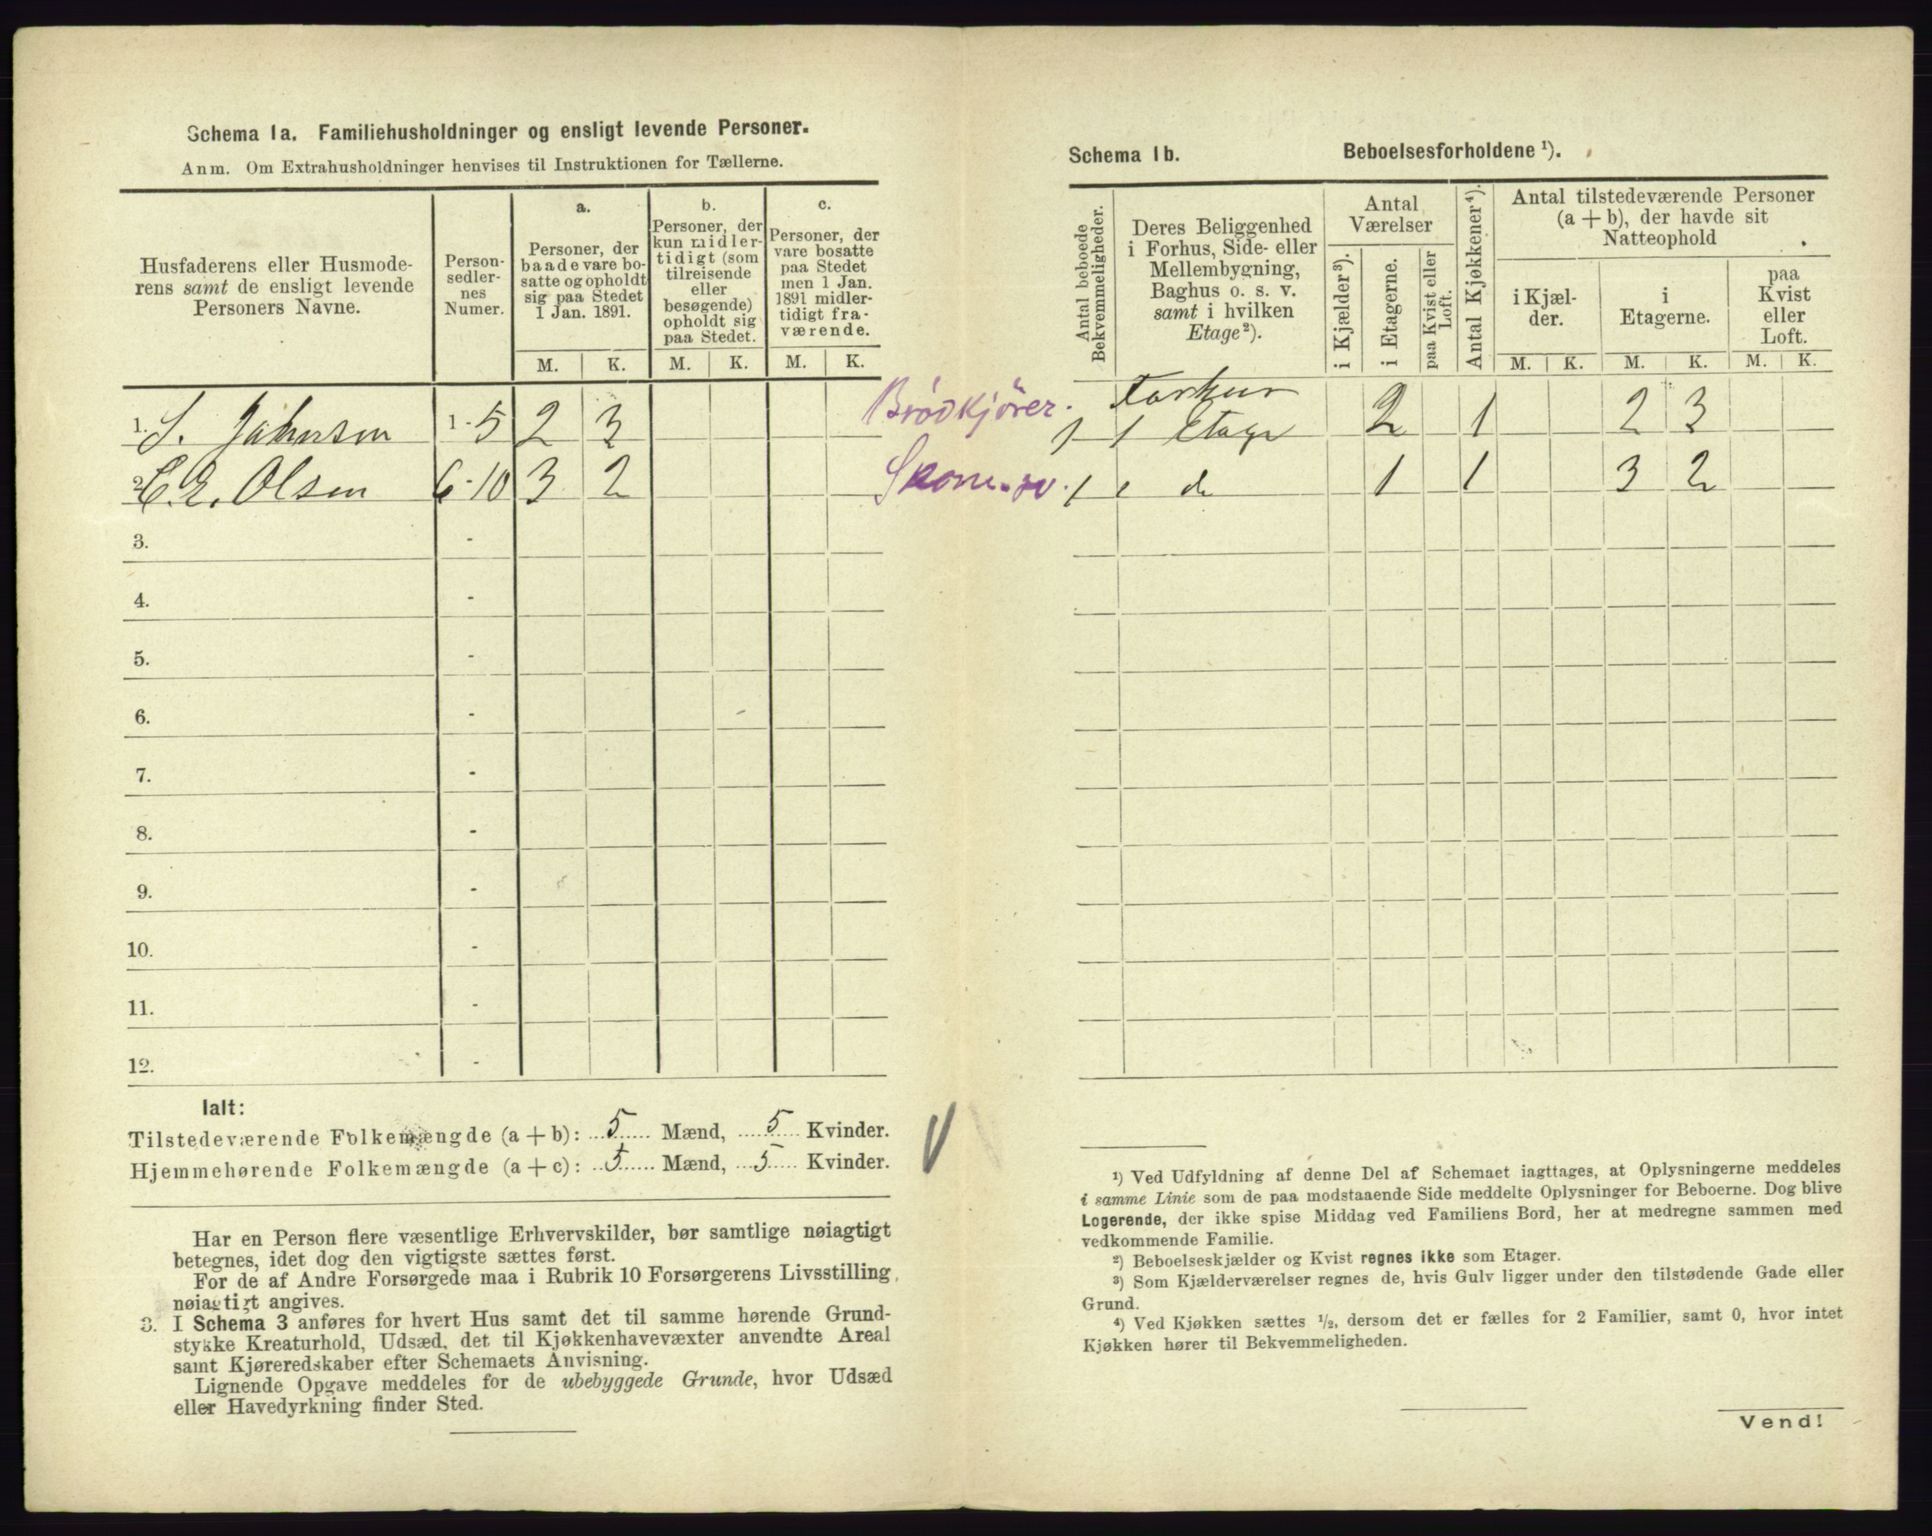 Schema 1a. Familiehusholdninger og ensligt levende Personer.
Anm. Om Extrahusholdninger henvises til Instruktionen for Tællerne.
Husfaderens eller Husmode-
rens samt de ensligt levende
Personers Navne.
Person-
sedler-
nes
Numer.
a.
Personer, der
baade vare bo-
satte og opholdt
sig paa Stedet
1 Jan. 1891.
b.
Personer, der
kun midler-
tidigt (som
tilreisende
eller
besøgende)
opholdt sig
paa Stedet.
c.
Personer, der
vare bosatte
paa Stedet
men 1 Jan.
1891 midler-
tidigt fra-
værende.
M. K. M. K. M. K.
1. S. Johnsen 1-5 2 3
2. C. E. Olsen 6-10 3 2
3. -
4. -
5. -
6. -
7. -
8. -
9. -
10. -
11. -
12. -
Ialt:
Tilstedeværende Folkemængde (a + b): 5 Mænd, 5 Kvinder.
Hjemmehørende Folkemængde (a + c): 5 Mænd, 5 Kvinder.
Har en Person flere væsentlige Erhvervskilder, bør samtlige nøiagtigt
betegnes, idet dog den vigtigste sættes først.
For de af Andre Forsørgede maa i Rubrik 10 Forsørgerens Livsstilling
nøiagtigt angives.
3. I Schema 3 anføres for hvert Hus samt det til samme hørende Grund-
stykke Kreaturhold, Udsæd, det til Kjøkkenhavevæxter anvendte Areal
samt Kjøreredskaber efter Schemaets Anvisning.
Lignende Opgave meddeles for de ubebyggede Grunde, hvor Udsæd
eller Havedyrkning finder Sted.
Schema 1b. Beboelsesforholdene ¹).
Antal beboede
Bekvemmeligheder.
Deres Beliggenhed
i Forhus, Side- eller
Mellembygning,
Baghus o. s. v.
samt i hvilken
Etage²).
Antal
Værelser
i Kjælder³).
i Etagerne.
paa Kvist eller
Loft.
Antal Kjøkkener⁴).
Antal tilstedeværende Personer
(a + b), der havde sit
Natteophold
i Kjæl-
der.
i
Etagerne.
paa
Kvist
eller
Loft.
M. K. M. K. M. K.
Brödkjörer. Forhus
1 1 Etage 2 1 2 3
1 1 do 1 1 3 2
¹) Ved Udfyldning af denne Del af Schemaet iagttages, at Oplysningerne meddeles
i samme Linie som de paa modstaaende Side meddelte Oplysninger for Beboerne. Dog blive
Logerende, der ikke spise Middag ved Familiens Bord, her at medregne sammen med
vedkommende Familie.
²) Beboelseskjælder og Kvist regnes ikke som Etager.
³) Som Kjælderværelser regnes de, hvis Gulv ligger under den tilstødende Gade eller
Grund.
⁴) Ved Kjøkken sættes ½, dersom det er fælles for 2 Familier, samt 0, hvor intet
Kjøkken hører til Bekvemmeligheden.
Vend!